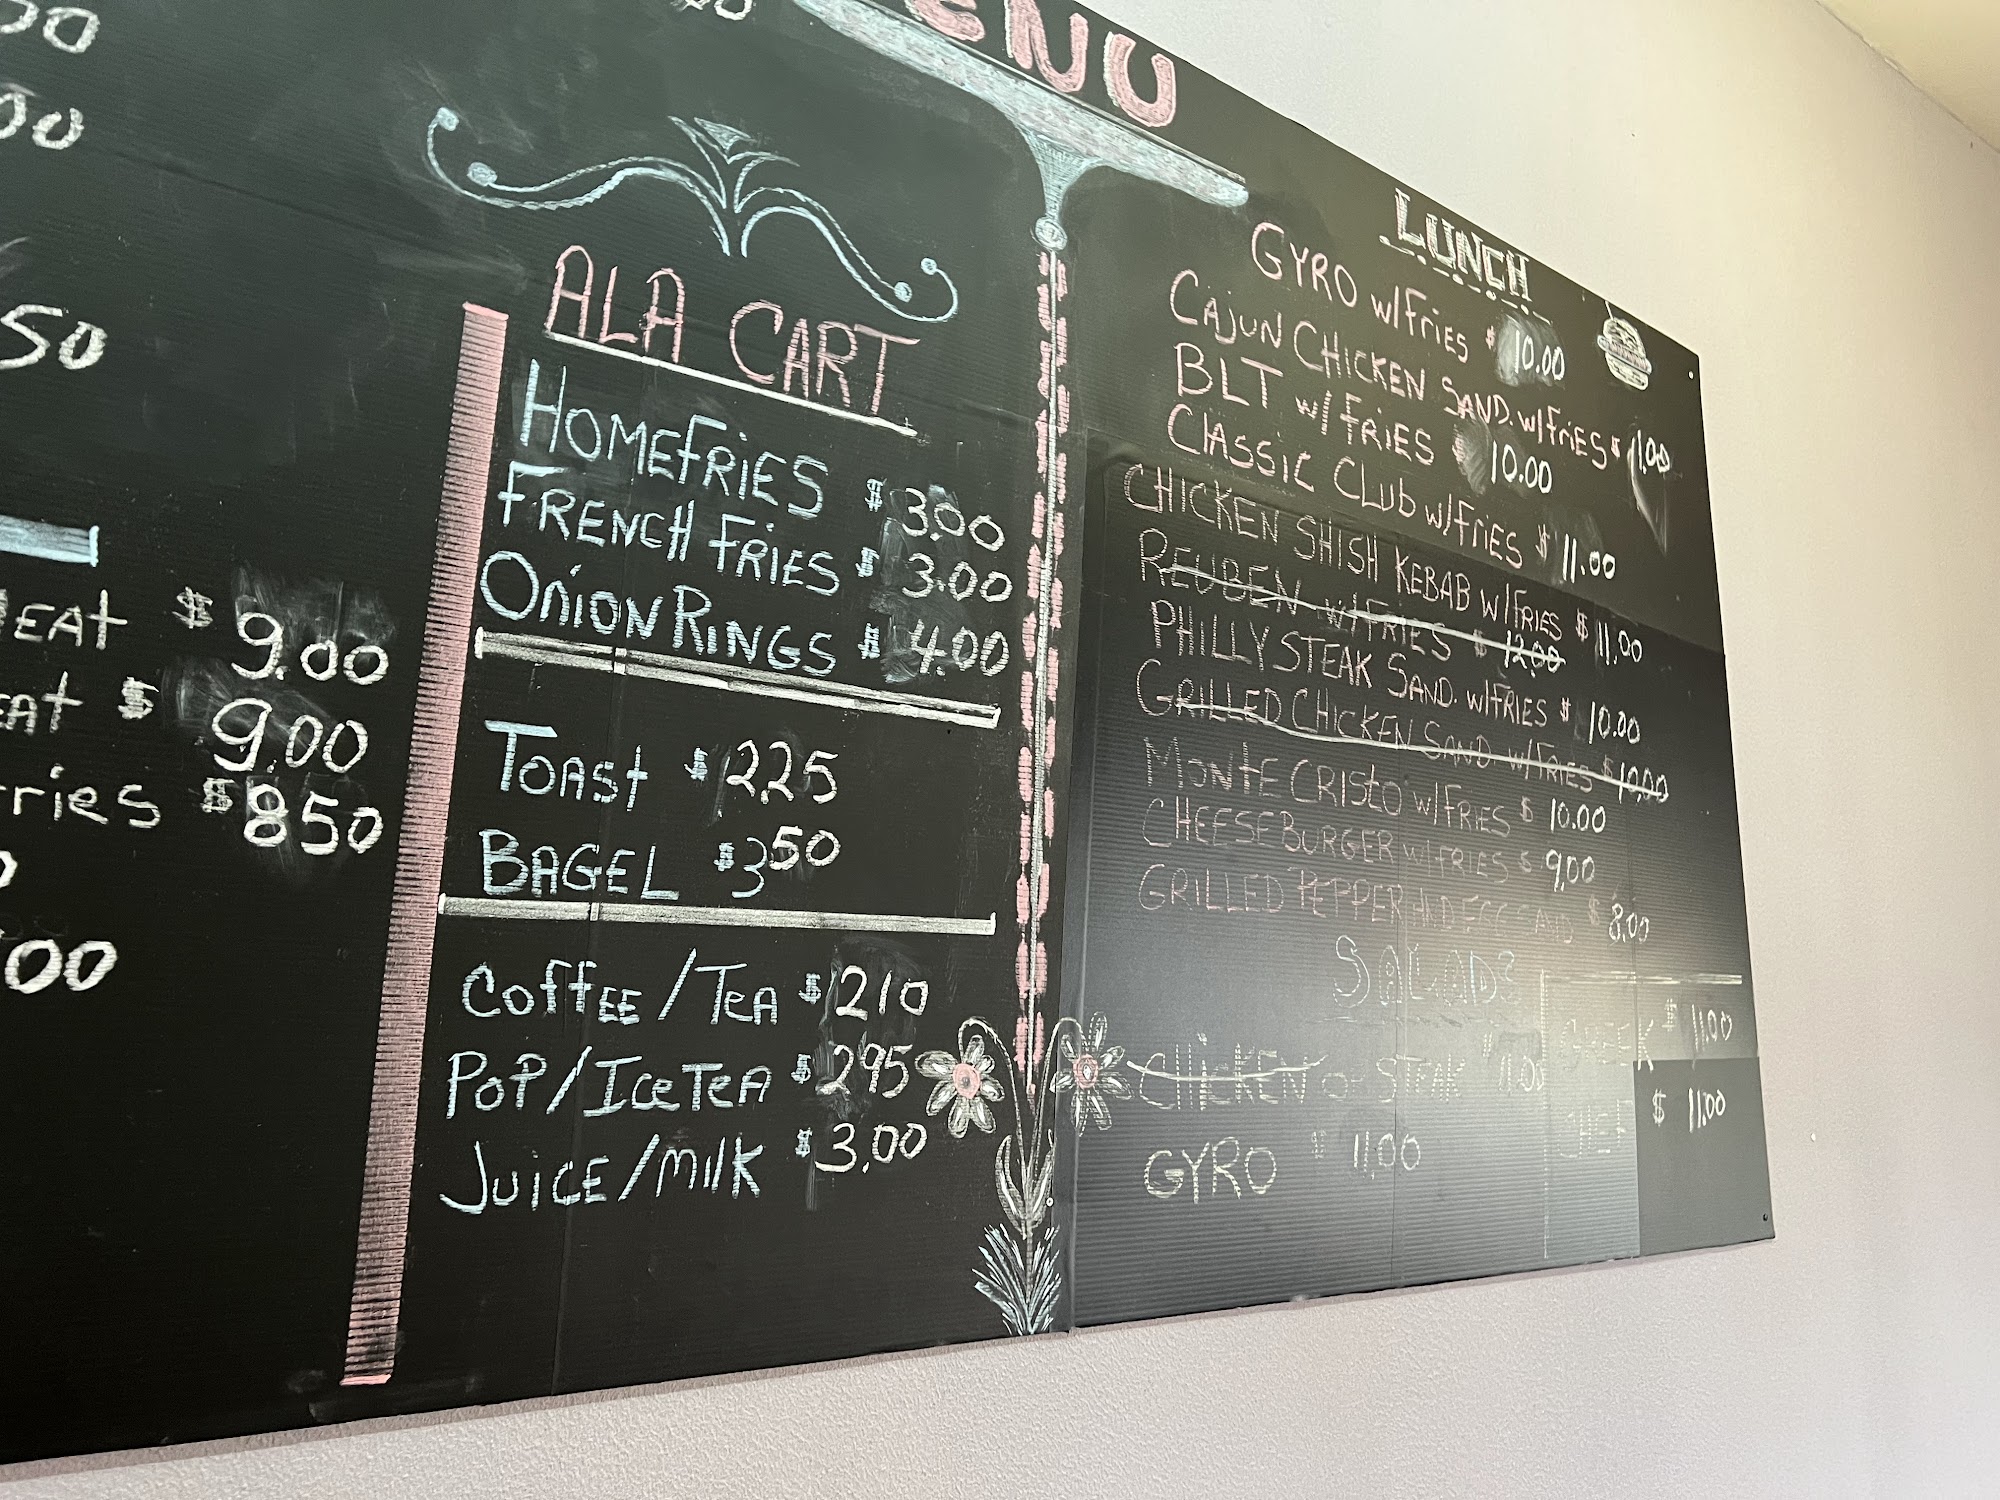 00
00
50
EAT $ 9.00
EAT $ 9.00
ries $ 850
00
ENU
ALA CART
HOMEFRIES $ 3.00
FRENCH FRIES $ 3.00
ONION RINGS $ 4.00
TOAST $ 225
BAGEL $ 350
COFFEE/TEA $ 210
POP/ICE TEA $ 295
JUICE/MILK $ 3.00
LUNCH
GYRO w/Fries $ 10.00
CAJUN CHICKEN SAND. w/FRIES $ 11.00
BLT w/FRIES $ 10.00
CLASSIC CLUB w/FRIES $ 11.00
CHICKEN SHISH KEBAB w/FRIES $ 11.00
REUBEN w/FRIES $ 12.00
PHILLY STEAK SAND. w/FRIES $ 10.00
GRILLED CHICKEN SAND w/FRIES $ 10.00
MONTE CRISTO w/FRIES $ 10.00
CHEESEBURGER w/FRIES $ 9.00
GRILLED PEPPER AND EGG SAND $ 8.00
SALADS
CHICKEN or STEAK $ 11.00
GYRO $ 11.00
GREEK $ 11.00
CHEF $ 11.00